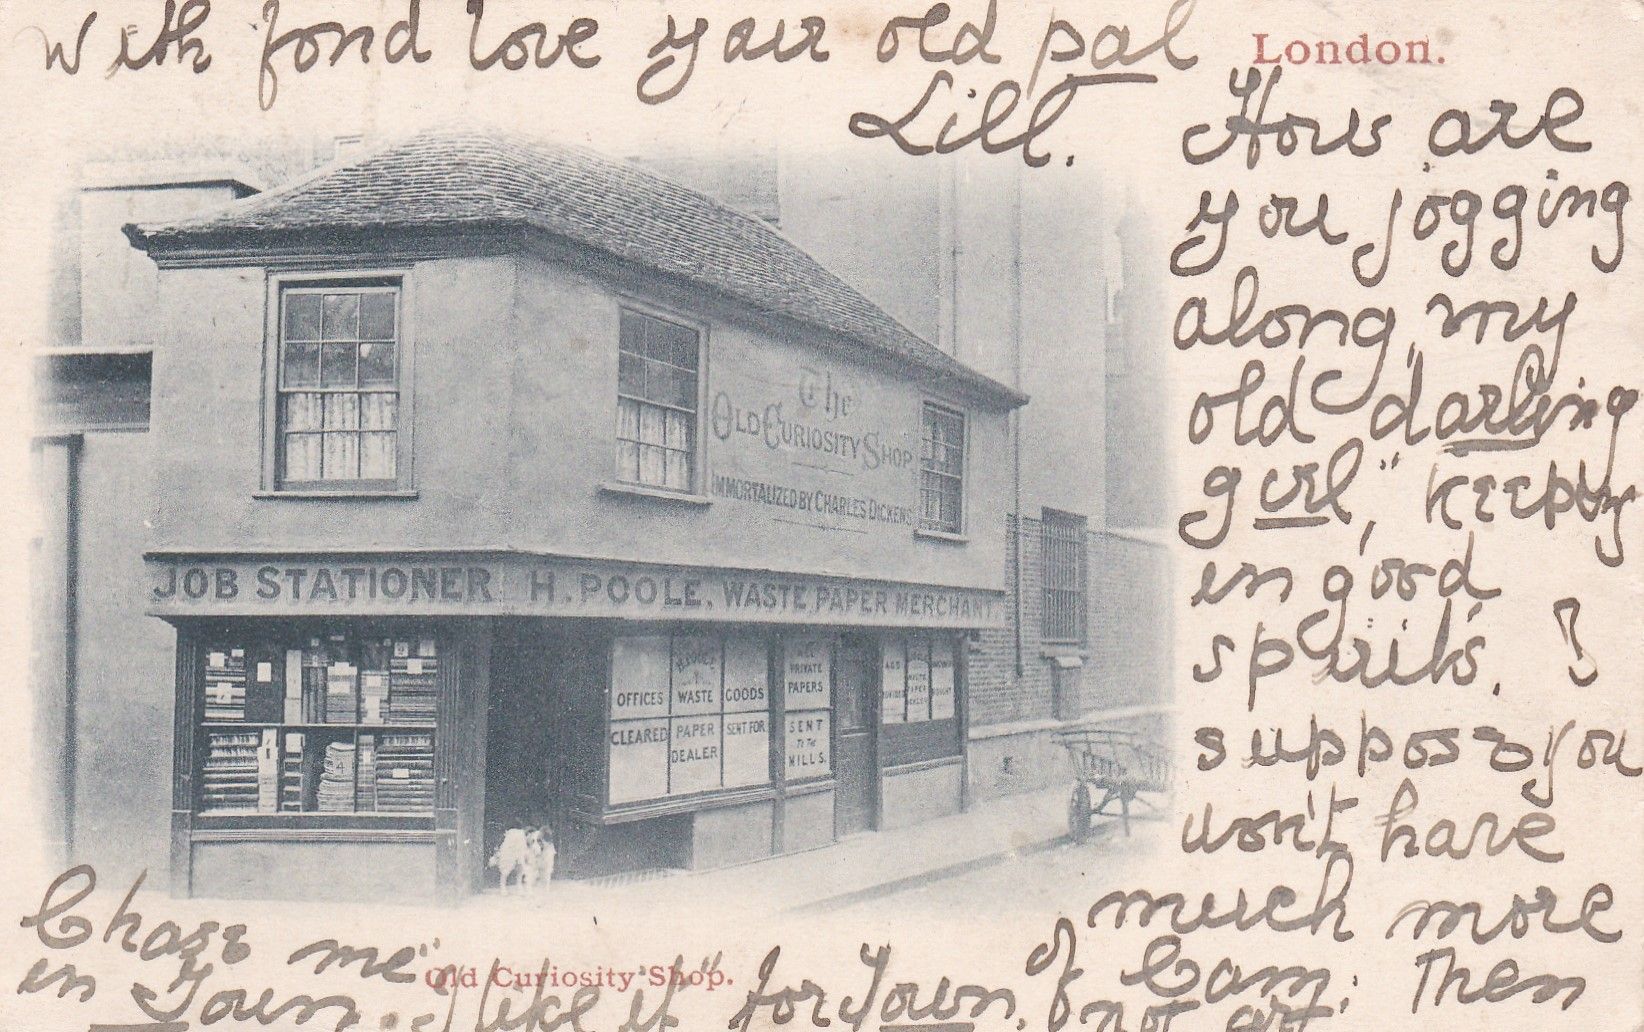 With fond love your old pal
Lill.
London.
How are
you jogging
along, "my
old darling
girl", keeping
in good
spirits. I
suppose you
won't have
much more
of Cam: Then
"Chase me"
in Town. I like it" for Town, & not at
The
OLD CURIOSITY SHOP
IMMORTALIZED BY CHARLES DICKENS
JOB STATIONER H. POOLE. WASTE PAPER MERCHANT
OFFICES
CLEARED
WASTE
PAPER
DEALER
GOODS
SENT FOR
PRIVATE
PAPERS
SENT
TO THE
MILLS.
Old Curiosity Shop.